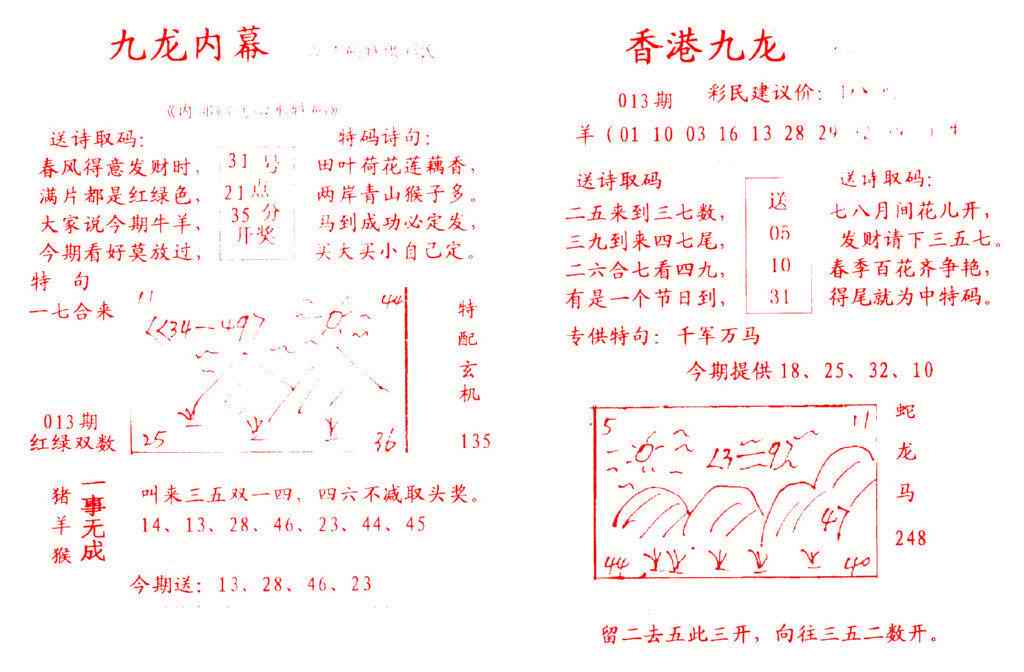 九龙内幕
送诗取码：
春风得意发财时，
满片都是红绿色，
大家说今期牛羊，
今期看好莫放过，
31号
21点
35分
开奖
特码诗句：
田叶荷花莲藕香，
两岸青山猴子多。
马到成功必定发，
买大买小自己定。
特句
一七合来
013期
红绿双数
11
44
<<34—49>
25
36
特配玄机
135
猪羊猴
一事无成
叫来三五双一四，四六不减取头奖。
14、13、28、46、23、44、45
今期送：13、28、46、23
香港九龙
013期
彩民建议价：
羊（01 10 03 16 13 28 29
送诗取码
二五来到三七数，
三九到来四七尾，
二六合七看四九，
有是一个节日到，
送
05
10
31
送诗取码：
七八月间花儿开，
发财请下三五七。
春季百花齐争艳，
得尾就为中特码。
专供特句：千军万马
今期提供18、25、32、10
5
11
47
44
40
蛇
龙
马
248
留二去五此三开，向往三五二数开。